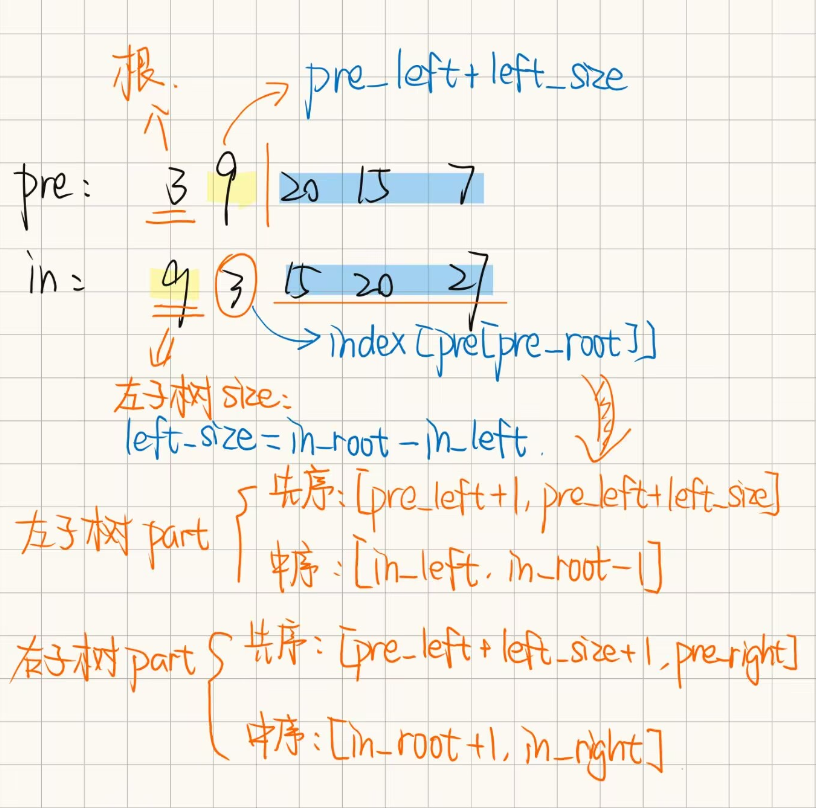 根.
pre_left+left_size
pre: 3 9 20 15 7
in: 9 3 15 20 27
index[pre[pre_root]]
左子树size:
left_size=in_root-in_left.
左子树part
先序:[pre_left+1,pre_left+left_size]
中序:[in_left,in_root-1]
右子树part
先序:[pre_left+left_size+1,pre_right]
中序:[in_root+1,in_right]